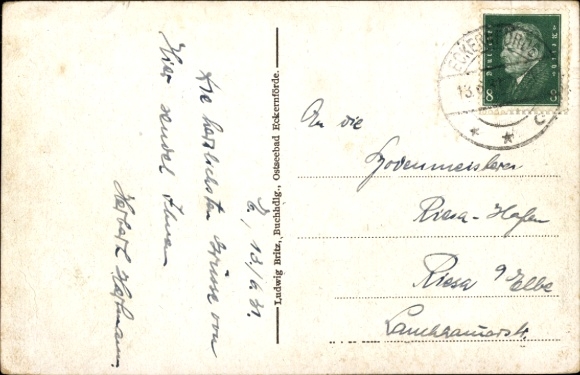 Die herzlichsten Grüsse von
Hier sendet Ihnen
Herbert Hofmann.
E., 13./6. 31.
Ludwig Britz, Buchhdlg., Ostseebad Eckernförde.
ECKERNFÖRDE
13.6.
c
Deutsches Reich
8 8
An die
Bodenmeisterei
Riesa-Hafen
Riesa a/Elbe
Lauchhammerstr.